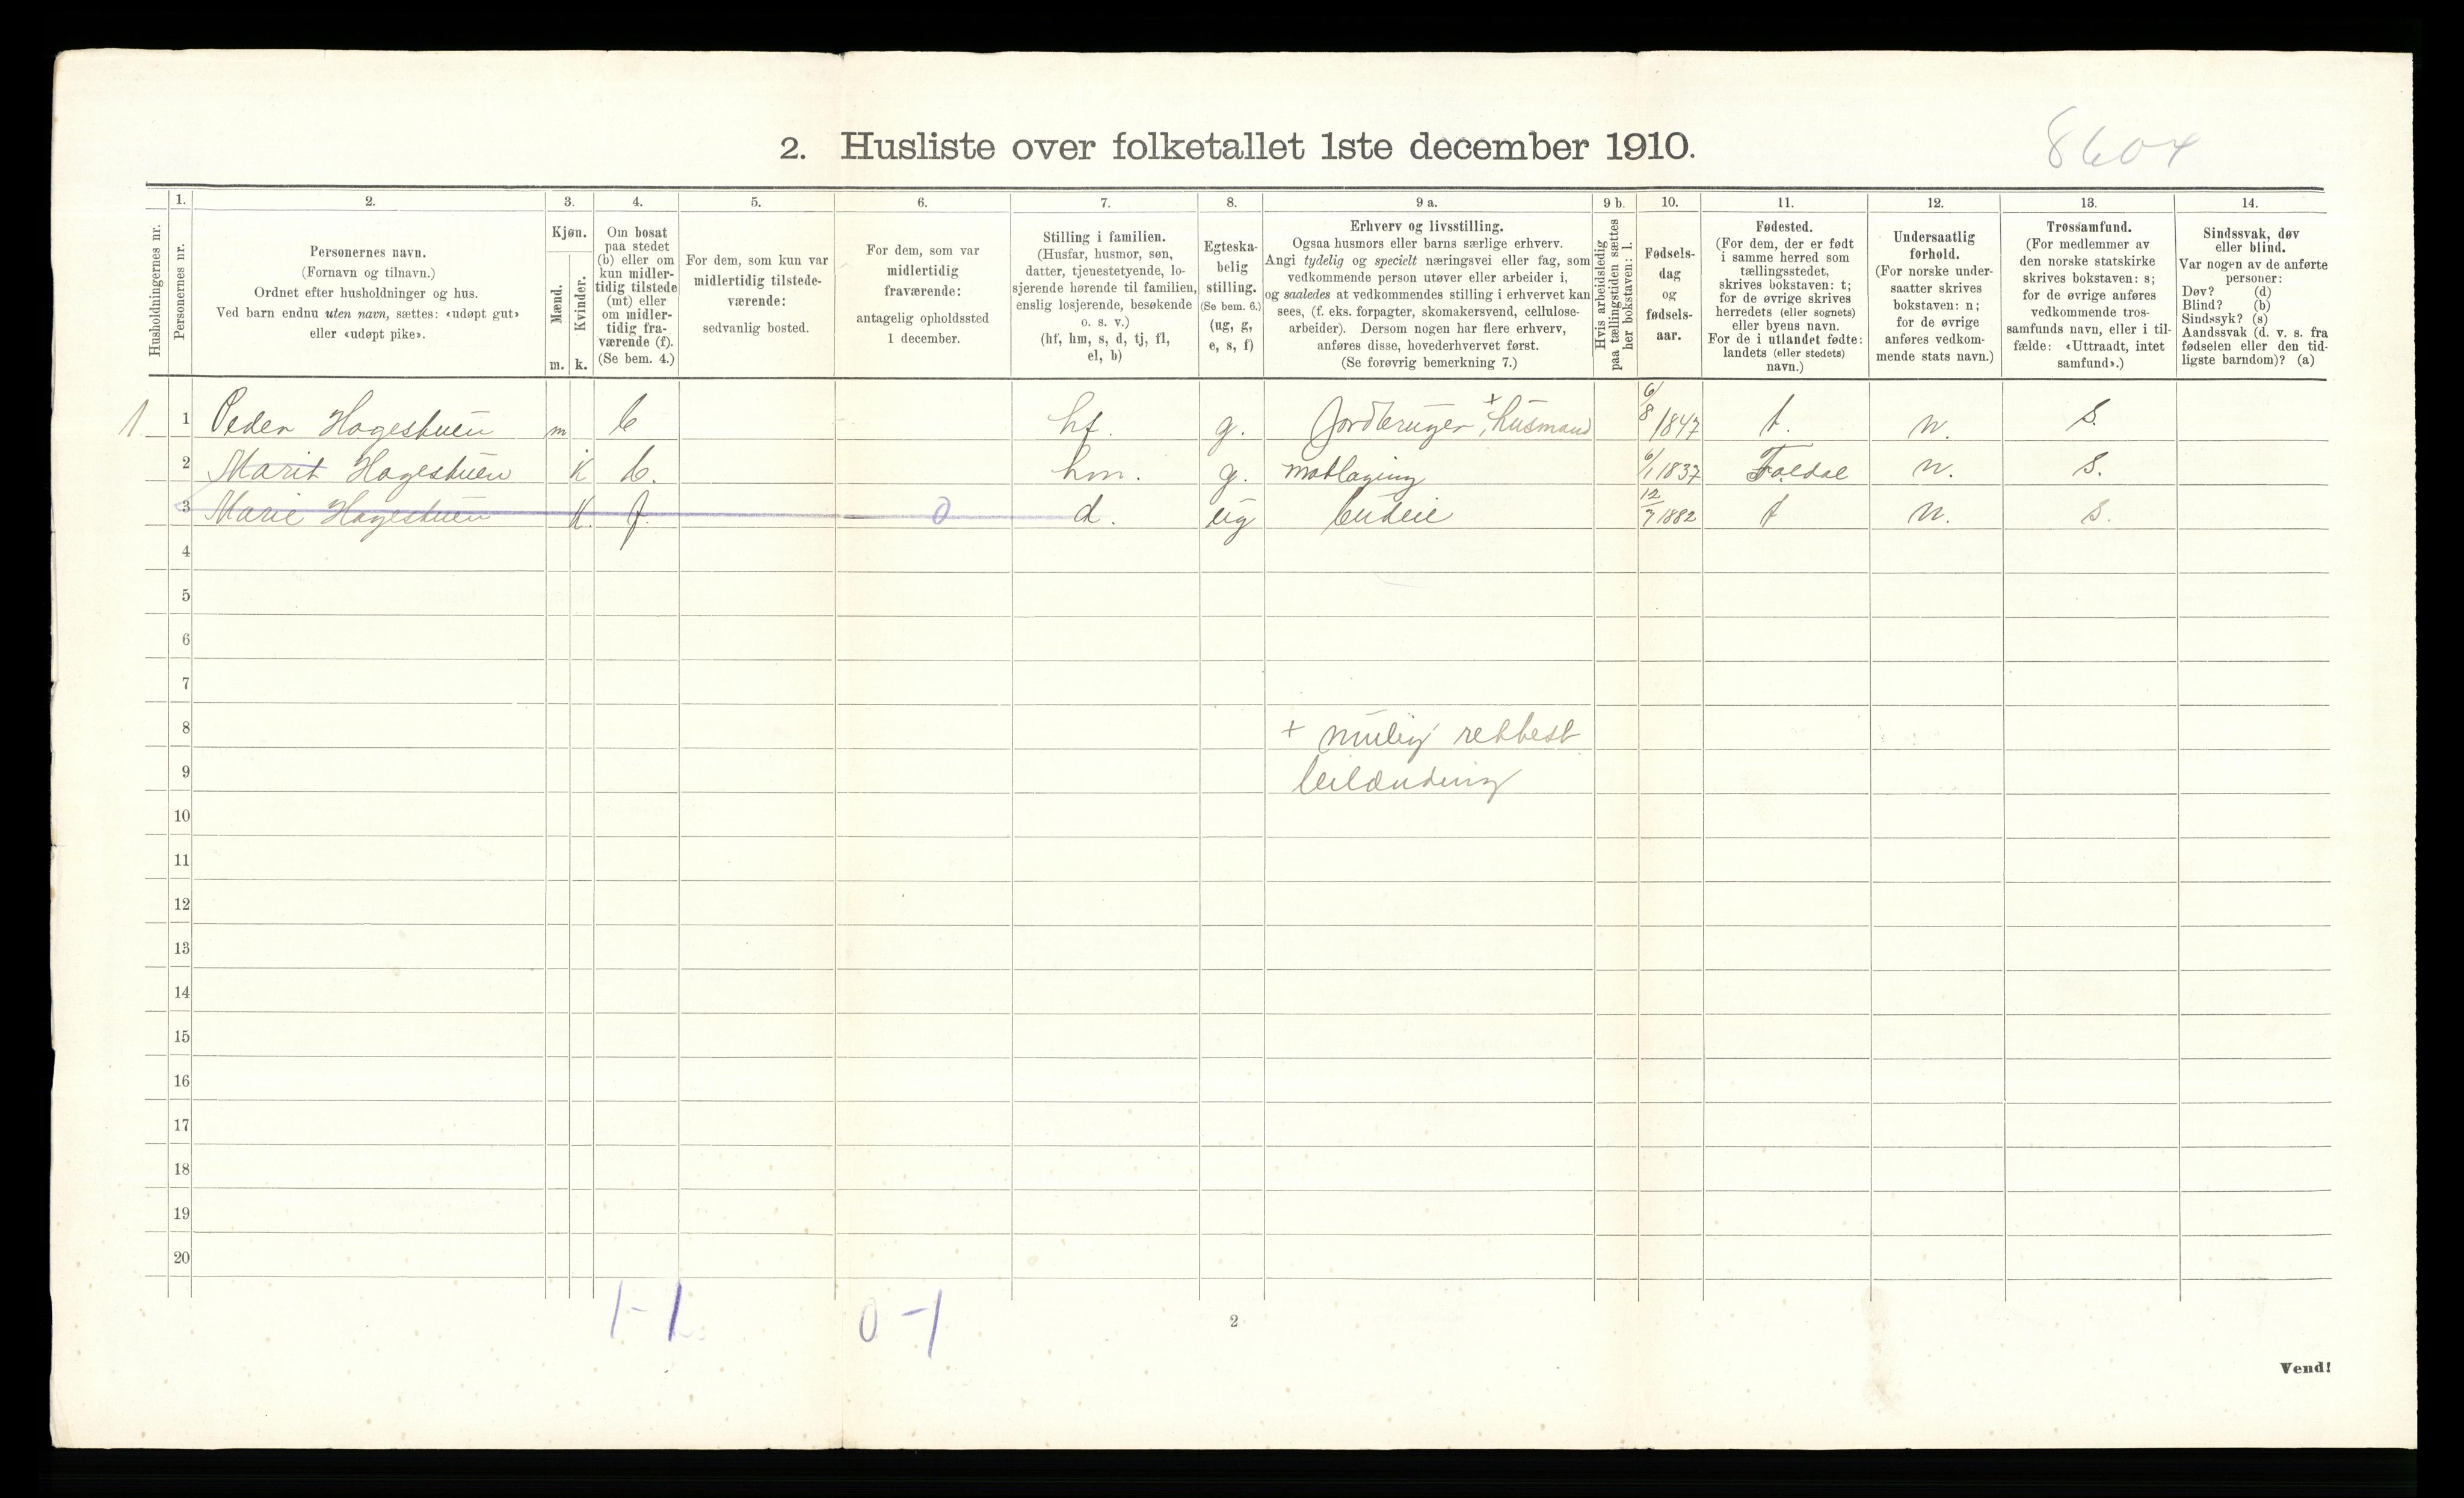 2. Husliste over folketallet 1ste december 1910.
8604
Husholdningernes nr.
1.
Personernes nr.
2.
Personernes navn.
(Fornavn og tilnavn.)
Ordnet efter husholdninger og hus.
Ved barn endnu uten navn, sættes: «udøpt gut»
eller «udøpt pike».
3.
Kjøn.
Mænd.
Kvinder.
m. k.
4.
Om bosat
paa stedet
(b) eller om
kun midler-
tidig tilstede
(mt) eller
om midler-
tidig fra-
værende (f).
(Se bem. 4.)
5.
For dem, som kun var
midlertidig tilstede-
værende:
sedvanlig bosted.
6.
For dem, som var
midlertidig
fraværende:
antagelig opholdssted
1 december.
7.
Stilling i familien.
(Husfar, husmor, søn,
datter, tjenestetyende, lo-
sjerende hørende til familien,
enslig losjerende, besøkende
o. s. v.)
(hf, hm, s, d, tj, fl,
el, b)
8.
Egteska-
belig
stilling.
(Se bem. 6.)
(ug, g,
e, s, f)
9 a.
Erhverv og livsstilling.
Ogsaa husmors eller barns særlige erhverv.
Angi tydelig og specielt næringsvei eller fag, som
vedkommende person utøver eller arbeider i,
og saaledes at vedkommendes stilling i erhvervet kan
sees, (f. eks. forpagter, skomakersvend, cellulose-
arbeider). Dersom nogen har flere erhverv,
anføres disse, hovederhvervet først.
(Se forøvrig bemerkning 7.)
9 b.
Hvis arbeidsledig
paa tællingstiden sættes
her bokstaven: l.
10.
Fødsels-
dag
og
fødsels-
aar.
11.
Fødested.
(For dem, der er født
i samme herred som
tællingsstedet,
skrives bokstaven: t;
for de øvrige skrives
herredets (eller sognets)
eller byens navn.
For de i utlandet fødte:
landets (eller stedets)
navn.)
12.
Undersaatlig
forhold.
(For norske under-
saatter skrives
bokstaven: n;
for de øvrige
anføres vedkom-
mende stats navn.)
13.
Trossamfund.
(For medlemmer av
den norske statskirke
skrives bokstaven: s;
for de øvrige anføres
vedkommende tros-
samfunds navn, eller i til-
fælde: «Uttraadt, intet
samfund».)
14.
Sindssvak, døv
eller blind.
Var nogen av de anførte
personer:
Døv? (d)
Blind? (b)
Sindssyk? (s)
Aandssvak (d. v. s. fra
fødselen eller den tid-
ligste barndom)? (a)
1. 1 Peder Hagestuen m b hf. g. Jordbruger, + husmand 6/8 1847 t. n. s.
2 Marit Hagestuen k b. hm. g. matlaging 6/1 1837 Foldal n. s.
3 Marie Hagestuen k. f. 0 d. ug budeie 12/7 1882 t n. s.
4
5
6
7
8 + mulig rettest
9 leilænding
10
11
12
13
14
15
16
17
18
19
20
1 - 1 0 - 1
2
Vend!